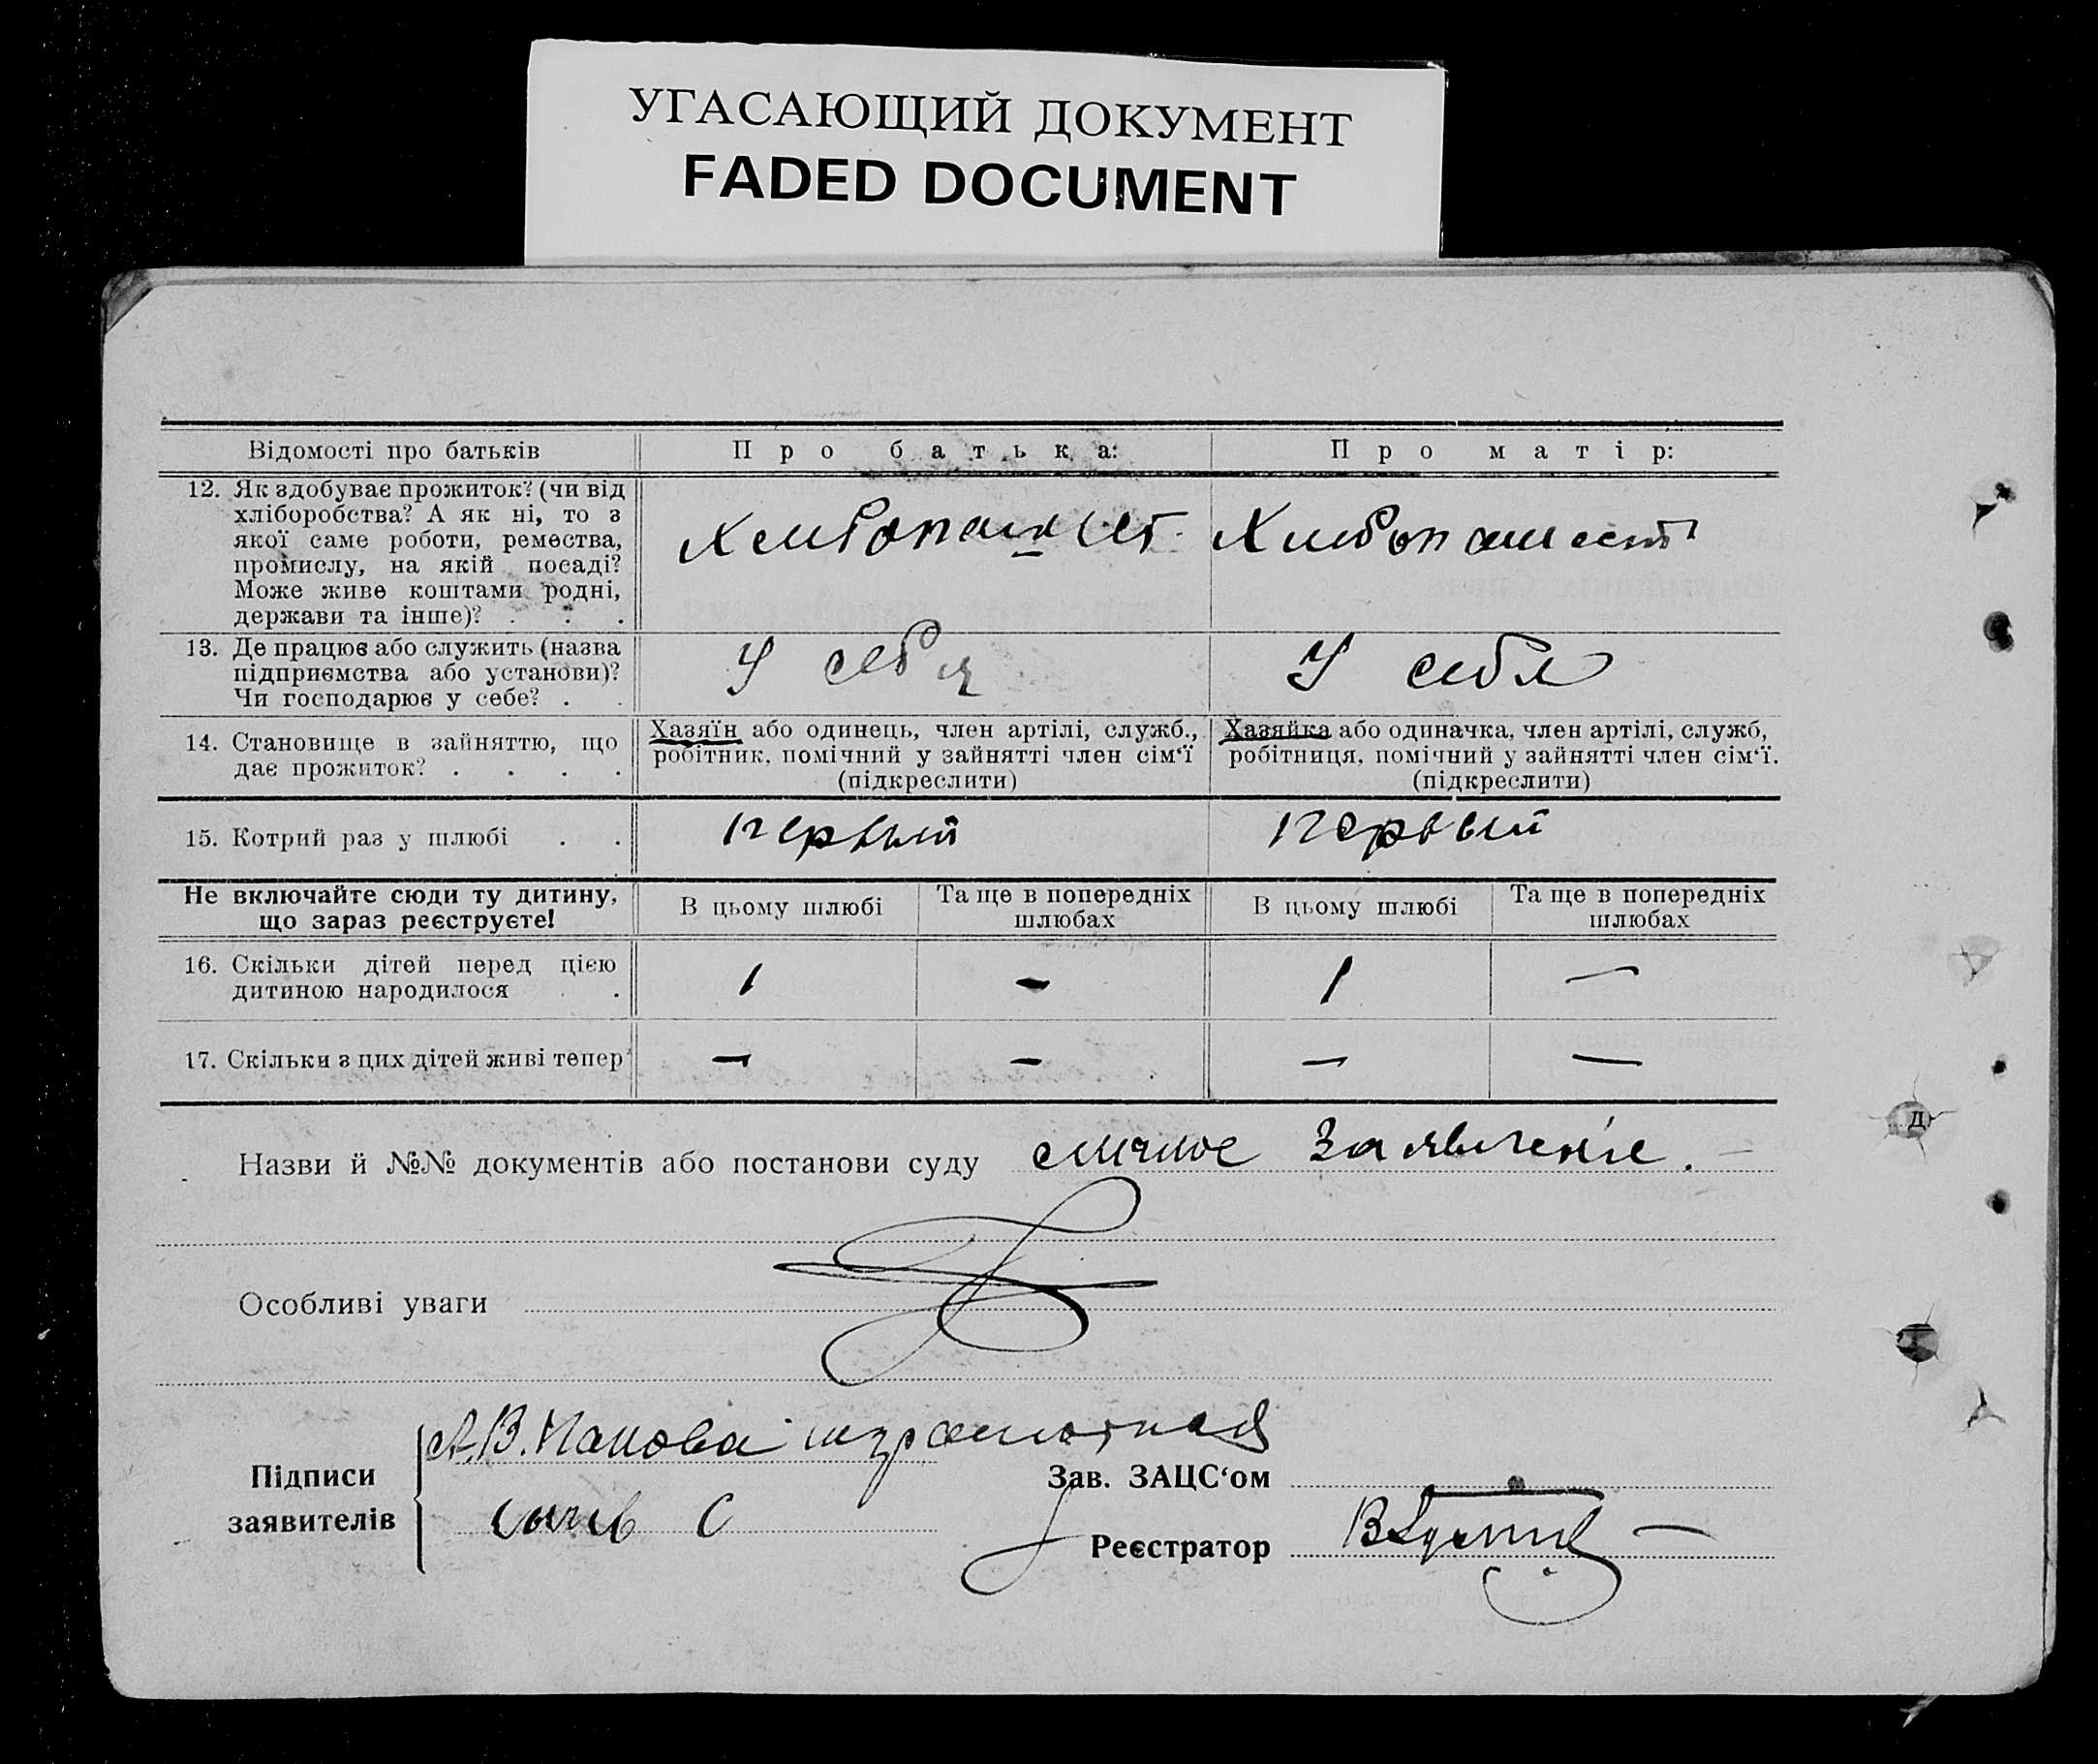 УГАСАЮЩИЙ ДОКУМЕНТ
FADED DOCUMENT
Відомості про батьків
Про батька:
Про матір:
12. Як здобуває прожиток? (чи від
хліборобства? А як ні, то з
якої саме роботи, ремества,
промислу, на якій посаді?
Може живе коштами родні,
держави та інше)? . . .
Хлебопашест. Хлебопашест
13. Де працює або служить (назва
підприємства або установи)?
Чи господарює у себе? . .
У себя
У себя
14. Становище в зайняттю, що
дає прожиток? . . . .
Хазяїн або одинець, член артілі, служб.,
робітник, помічний у зайнятті член сім‘ї
(підкреслити)
Хазяйка або одиначка, член артілі, служб,
робітниця, помічний у зайнятті член сім‘ї.
(підкреслити)
15. Котрий раз у шлюбі . .
первый
первый
Не включайте сюди ту дитину,
що зараз реєструєте!
В цьому шлюбі
Та ще в попередніх
шлюбах
В цьому шлюбі
Та ще в попередніх
шлюбах
16. Скільки дітей перед цією
дитиною народилося . .
1 — 1 —
17. Скільки з цих дітей живі тепер
— — — —
Назви й №№ документів або постанови суду
заявление.
Особливі уваги
Підписи
заявителів
А.В. неграмотная
С
Зав. ЗАЦС‘ом
Реєстратор
Д